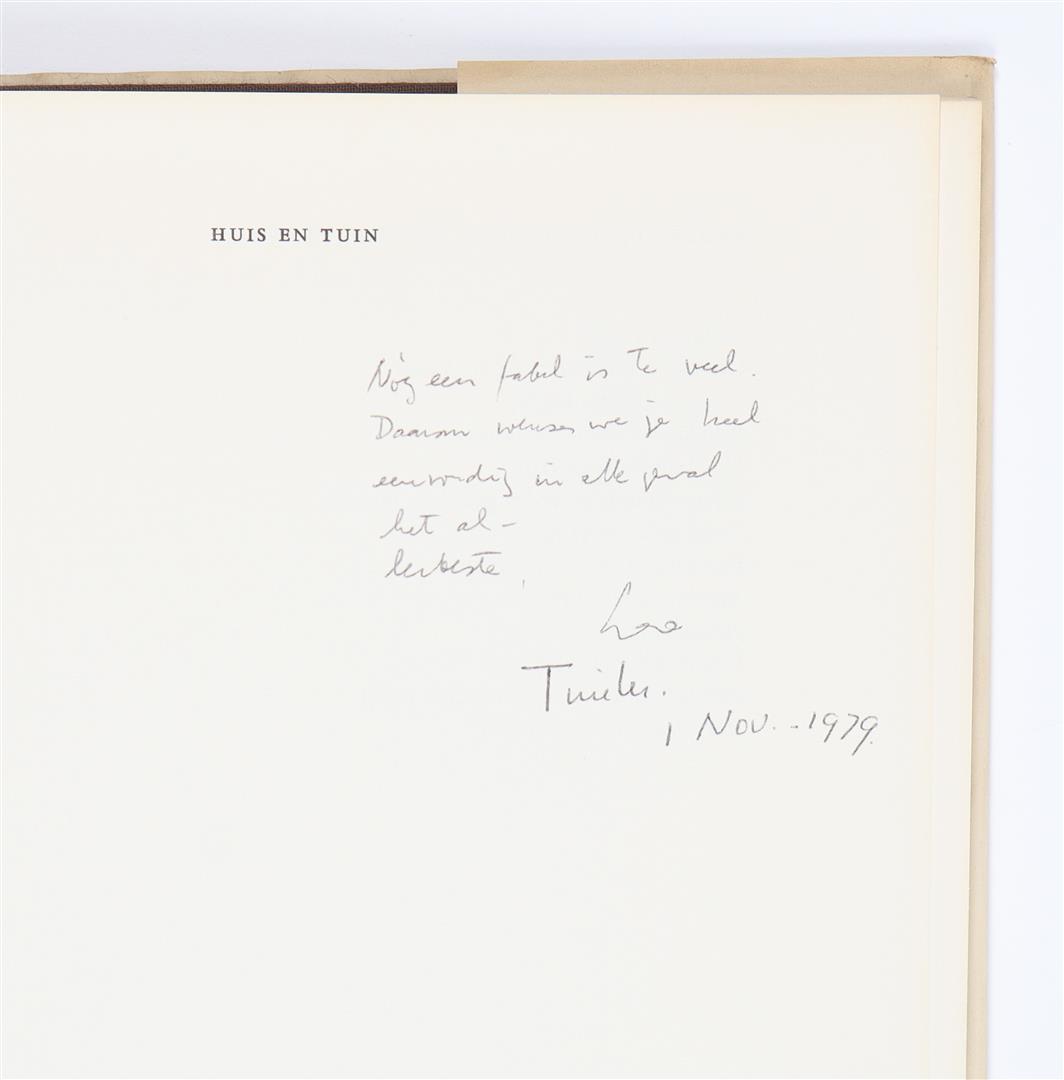 HUIS EN TUIN
Nòg een fabel is te veel.
Daarom wensen we je heel
eenvoudig in elk geval
het al-
lerbeste,
Leo
1 Nov. - 1979.